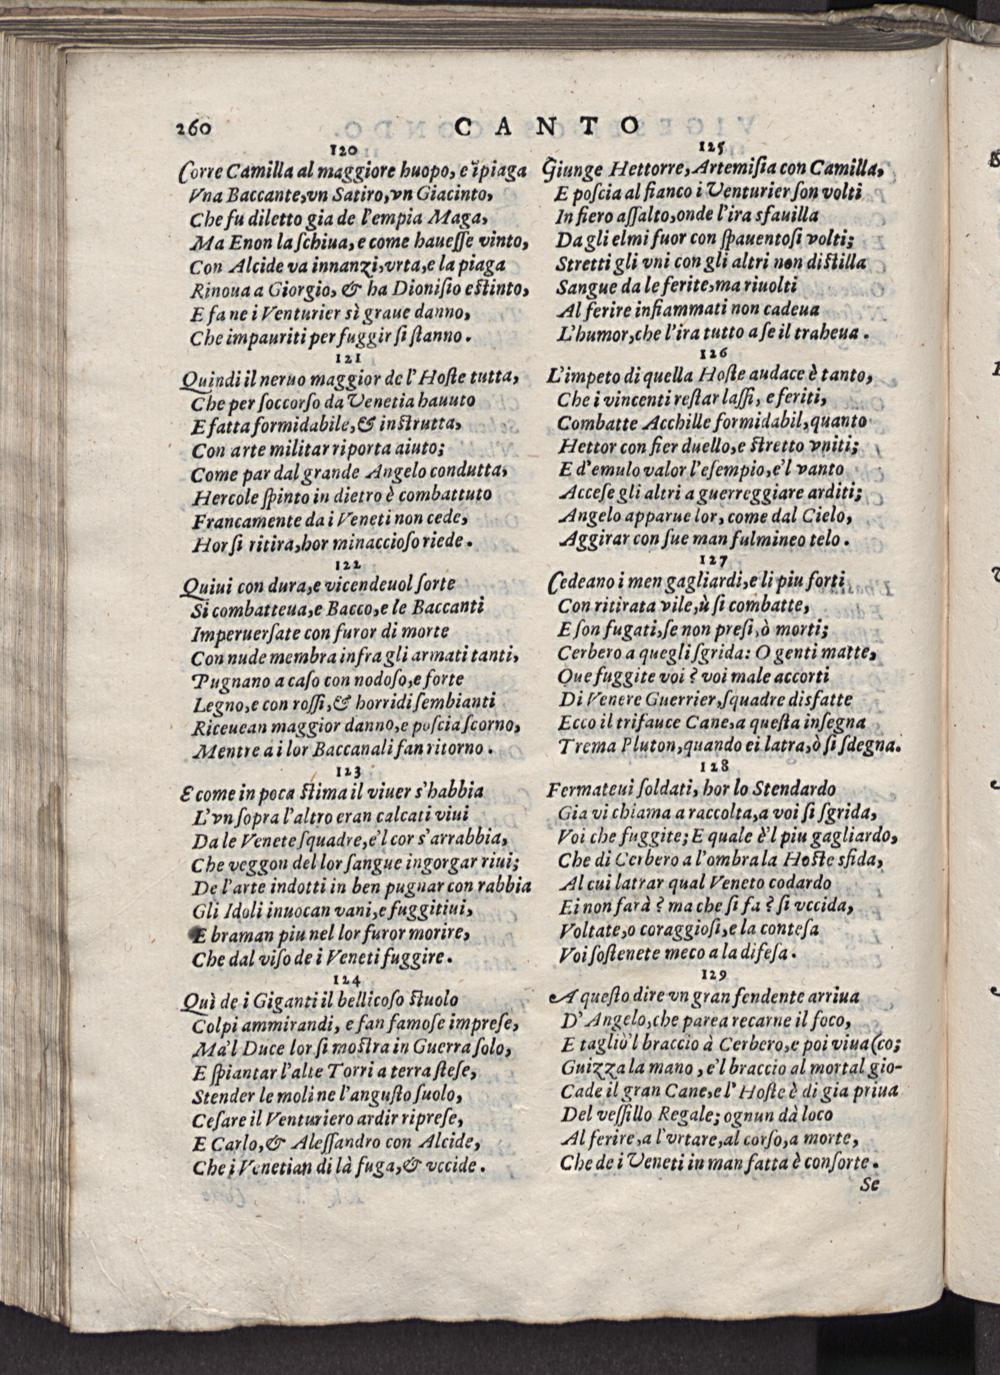 260
CANTO
120
Corre Camilla al maggiore huopo, e ĩpiaga
Vna Baccante, vn Satiro, vn Giacinto,
Che fu diletto gia de l'empia Maga,
Ma Enon la ſchiua, e come haueſſe vinto,
Con Alcide va innanzi, vrta, e la piaga
Rinoua a Giorgio, & ha Dioniſio eſtinto,
E fa ne i Venturier sì graue danno,
Che impauriti per fuggir ſi ſtanno.
121
Quindi il neruo maggior de l'Hoſte tutta,
Che per ſoccorſo da Venetia hauuto
E fatta formidabile, & inſtrutta,
Con arte militar riporta aiuto;
Come par dal grande Angelo condutta,
Hercole ſpinto in dietro è combattuto
Francamente da i Veneti non cede,
Hor ſi ritira, hor minaccioſo riede.
122
Quiui con dura, e vicendeuol ſorte
Si combatteua, e Bacco, e le Baccanti
Imperuerſate con furor di morte
Con nude membra infra gli armati tanti,
Pugnano a caſo con nodoſo, e forte
Legno, e con roſſi, & horridi ſembianti
Riceuean maggior danno, e poſcia ſcorno,
Mentre a i lor Baccanali fan ritorno.
123
E come in poca ſtima il viuer s'habbia
L'vn ſopra l'altro eran calcati viui
Da le Venete ſquadre, e'l cor s'arrabbia,
Che veggon del lor ſangue ingorgar riui;
De l'arte indotti in ben pugnar con rabbia
Gli Idoli inuocan vani, e fuggitiui,
E braman piu nel lor furor morire,
Che dal viſo de i Veneti fuggire.
124
Quì de i Giganti il bellicoſo ſtuolo
Colpi ammirandi, e fan famoſe impreſe,
Ma'l Duce lor ſi moſtra in Guerra ſolo,
E ſpiantar l'alte Torri a terra ſteſe,
Stender le moli ne l'anguſto ſuolo,
Ceſare il Venturiero ardir ripreſe,
E Carlo, & Aleſſandro con Alcide,
Che i Venetian di là fuga, & vccide.
125
Giunge Hettorre, Artemiſia con Camilla,
E poſcia al fianco i Venturier ſon volti
In fiero aſſalto, onde l'ira sfauilla
Da gli elmi fuor con ſpauentoſi volti;
Stretti gli vni con gli altri non diſtilla
Sangue da le ferite, ma riuolti
Al ferire infiammati non cadeua
L'humor, che l'ira tutto a ſe il traheua.
126
L'impeto di quella Hoſte audace è tanto,
Che i vincenti reſtar laſſi, e feriti,
Combatte Acchille formidabil, quanto
Hettor con fier duello, e ſtretto vniti;
E d'emulo valor l'eſempio, e'l vanto
Acceſe gli altri a guerreggiare arditi;
Angelo apparue lor, come dal Cielo,
Aggirar con ſue man fulmineo telo.
127
Cedeano i men gagliardi, e li piu forti
Con ritirata vile, ù ſi combatte,
E ſon fugati, ſe non preſi, ò morti;
Cerbero a quegli ſgrida: O genti matte,
Oue fuggite voi? voi male accorti
Di Venere Guerrier, ſquadre disfatte
Ecco il trifauce Cane, a queſta inſegna
Trema Pluton, quando ei latra, ò ſi ſdegna.
128
Fermateui ſoldati, hor lo Stendardo
Gia vi chiama a raccolta, a voi ſi ſgrida,
Voi che fuggite; E quale è'l piu gagliardo,
Che di Cerbero a l'ombra la Hoſte sfida,
Al cui latrar qual Veneto codardo
Ei non farà? ma che ſi fa? ſi vccida,
Voltate, o coraggioſi, e la conteſa
Voi ſoſtenete meco a la difeſa.
129
A queſto dire vn gran fendente arriua
D'Angelo, che parea recarne il foco,
E tagliò'l braccio à Cerbero, e poi viua (co;
Guizza la mano, e'l braccio al mortal gio-
Cade il gran Cane, e l'Hoſte è di gia priua
Del veſſillo Regale; ognun dà loco
Al ferire, a l'vrtare, al corſo, a morte,
Che de i Veneti in man fatta è conſorte.
Se